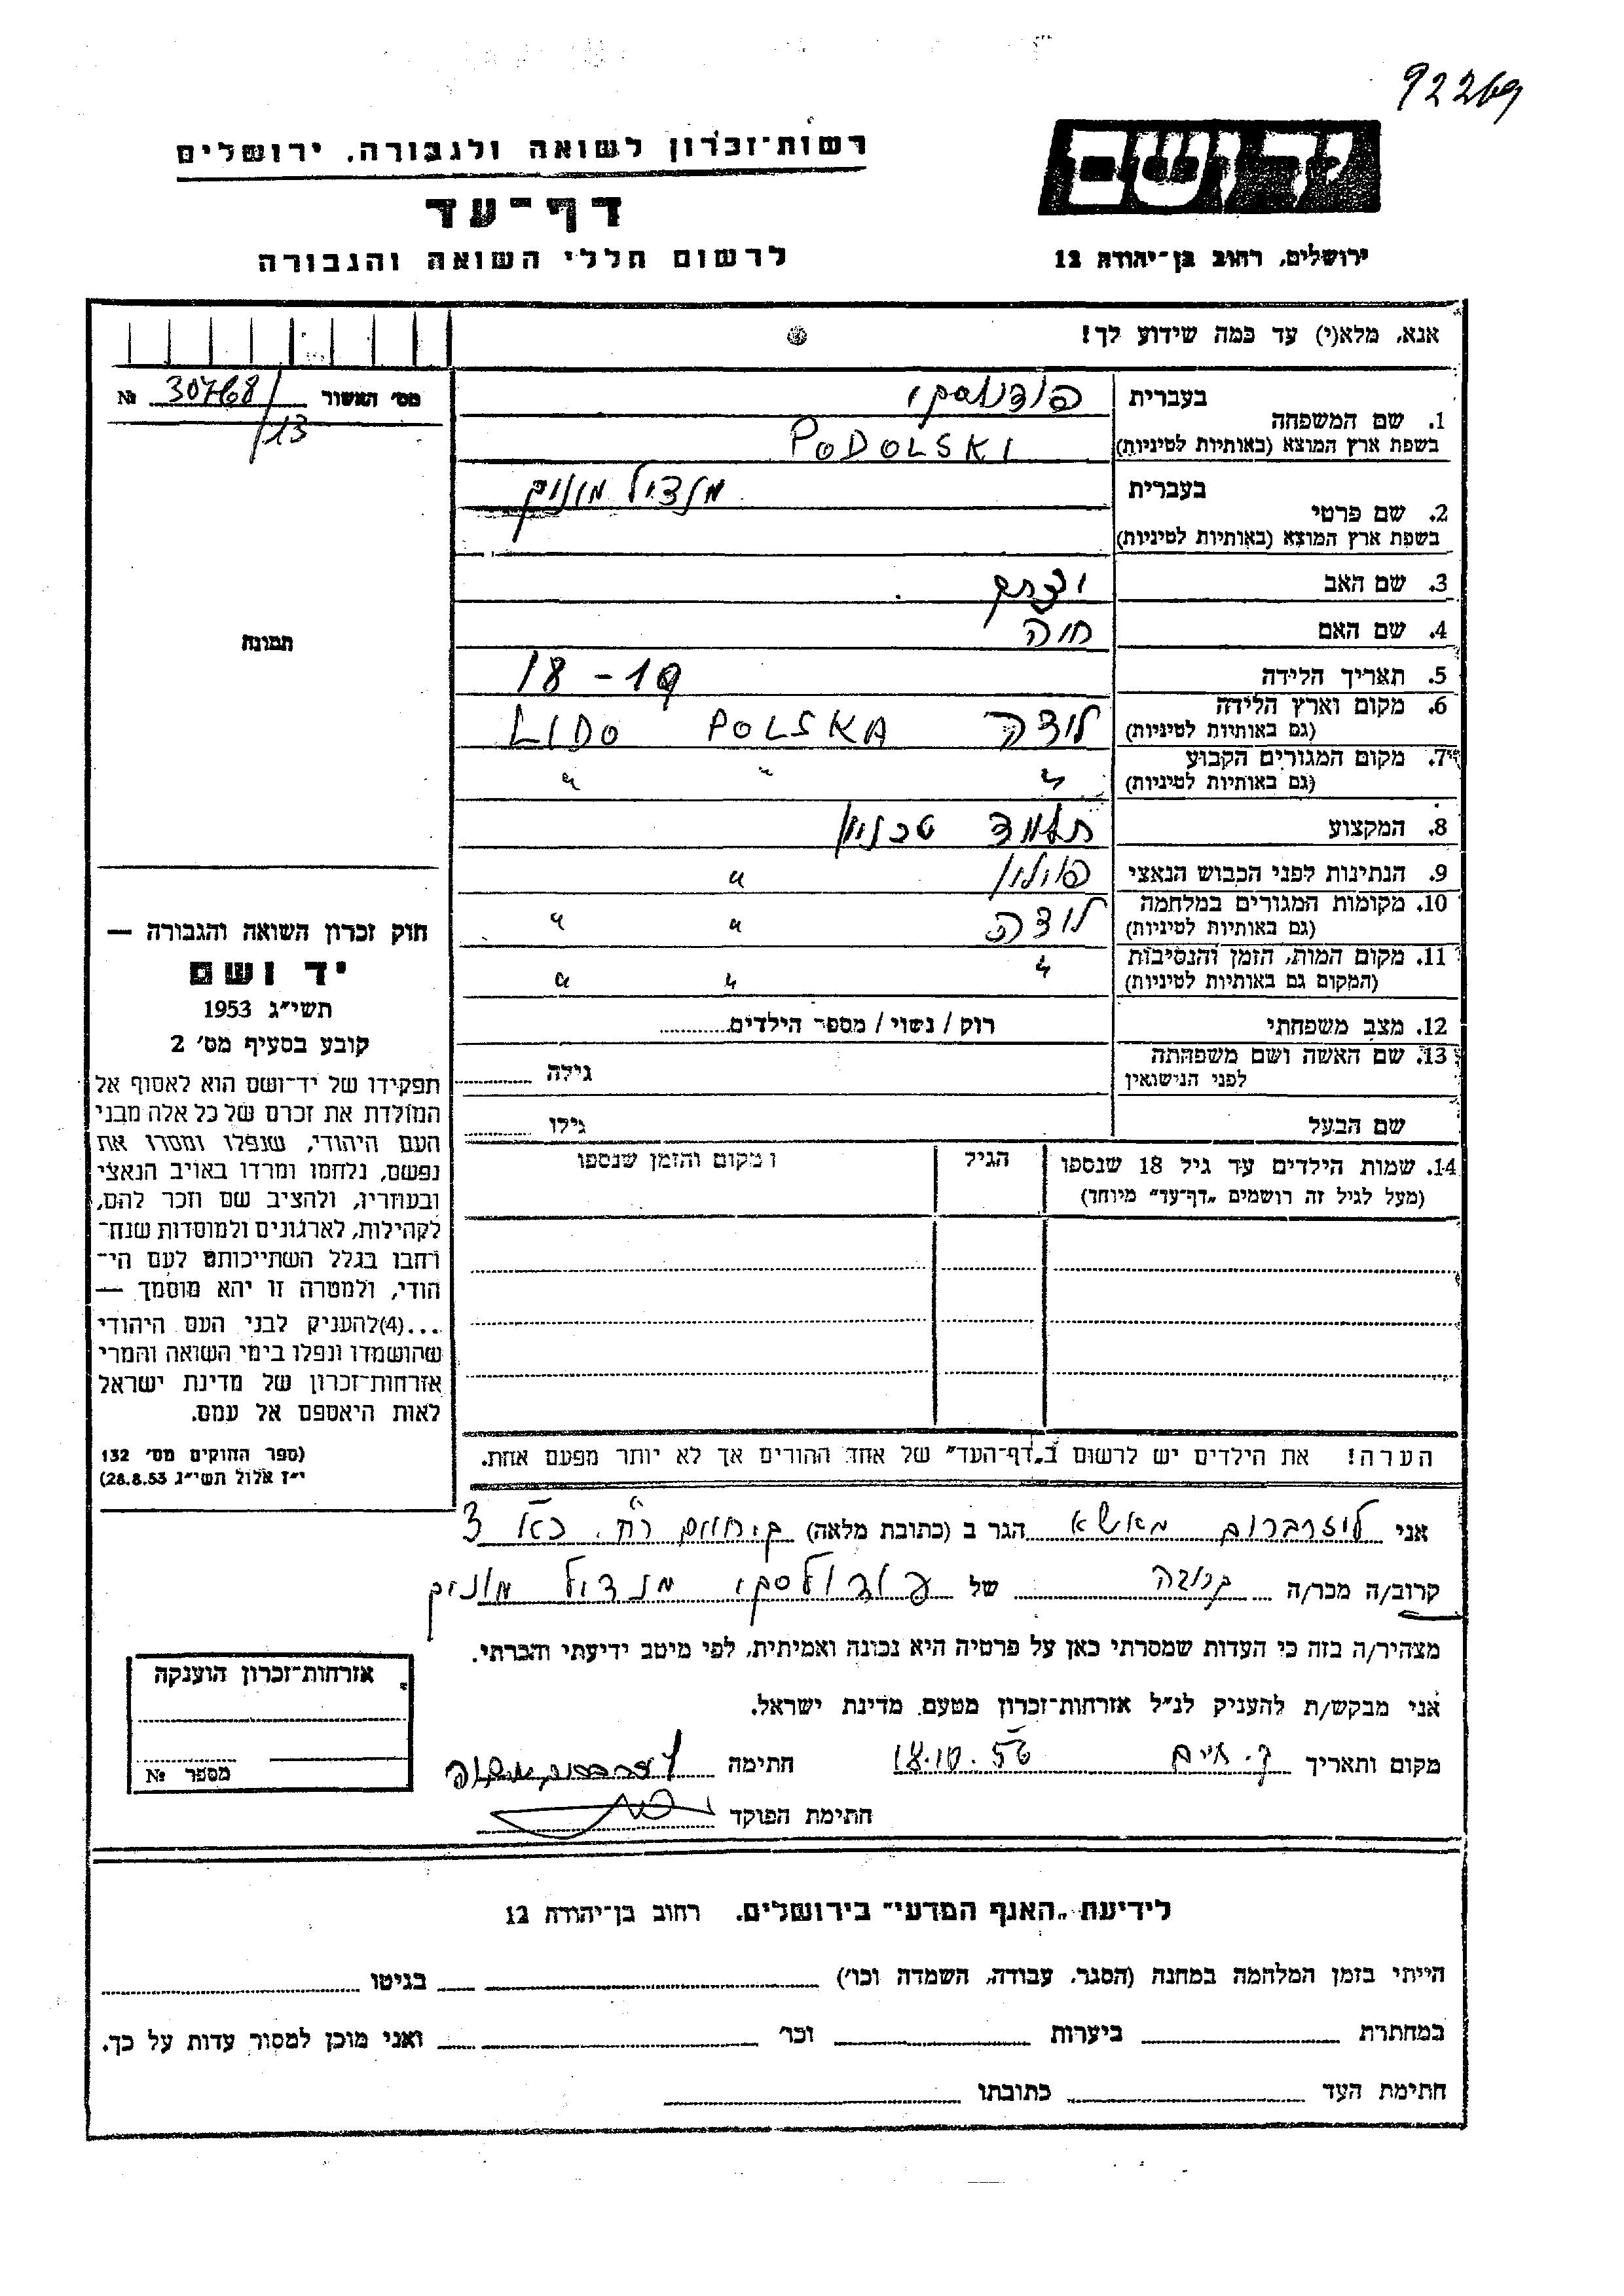 92269
יד ושם
רשות־זכרון לשואה ולגבורה, ירושלים
דף־עד
לרשום חללי השואה והגבורה
ירושלים, רחוב בן־יהודה 12
אנא, מלא(י) עד כמה שידוע לך!
מס׳ האשור 30768/ №
/13
תמונה
1. שם המשפחה בעברית פודולסקי
בשפת ארץ המוצא (באותיות לטיניות) PODOLSKI
2. שם פרטי בעברית מנדיל מוניק
בשפת ארץ המוצא (באותיות לטיניות)
3. שם האב יצחק
4. שם האם חוה
5. תאריך הלידה 18 - 19
6. מקום וארץ הלידה (גם באותיות לטיניות) לודז POLSKA LIDO
7. מקום המגורים הקבוע (גם באותיות לטיניות) " " "
8. המקצוע תלמיד טכניון
9. הנתינות לפני הכבוש הנאצי פולין "
10. מקומות המגורים במלחמה (גם באותיות לטיניות) לודז " "
11. מקום המות, הזמן והנסיבות (המקום גם באותיות לטיניות) " " "
12. מצב משפחתי רוק / נשוי / מספר הילדים
13. שם האשה ושם משפחתה לפני הנישואין גילה
שם הבעל גילו
14. שמות הילדים עד גיל 18 שנספו (מעל לגיל זה רושמים „דף־עד״ מיוחד) הגיל ומקום והזמן שנספו
הערה! את הילדים יש לרשום ב„דף־העד״ של אחד ההורים אך לא יותר מפעם אחת.
חוק זכרון השואה והגבורה —
יד ושם
תשי״ג 1953
קובע בסעיף מס׳ 2
תפקידו של יד־ושם הוא לאסוף אל
המולדת את זכרם של כל אלה מבני
העם היהודי, שנפלו ומסרו את
נפשם, נלחמו ומרדו באויב הנאצי
ובעוזריו, ולהציב שם וזכר להם,
לקהילות, לארגונים ולמוסדות שנח־
רחבו בגלל השתייכותם לעם הי־
הודי, ולמטרה זו יהא מוסמך —
...(4)להעניק לבני העם היהודי
שהושמדו ונפלו בימי השואה והמרי
אזרחות־זכרון של מדינת ישראל
לאות היאספם אל עמם.
(ספר החוקים מס׳ 132
י״ז אלול תשי״ג 28.8.53)
אני מאשא הגר ב (כתובת מלאה) 3
קרוב/ה מכר/ה של פודולסקי מנדיל מוניק
מצהיר/ה בזה כי העדות שמסרתי כאן על פרטיה היא נכונה ואמיתית, לפי מיטב ידיעתי והכרתי.
אני מבקש/ת להעניק לנ״ל אזרחות־זכרון מטעם מדינת ישראל.
מקום ותאריך ק. חיים 18.10.56 חתימה
חתימת הפוקד
אזרחות־זכרון הוענקה
מספר №
לידיעת „האגף המדעי״ בירושלים, רחוב בן־יהודה 12
הייתי בזמן המלחמה במחנה (הסגר, עבודה, השמדה וכו׳) בגיטו
במחתרת ביערות וכו׳ ואני מוכן למסור עדות על כך.
חתימת העד כתובתו